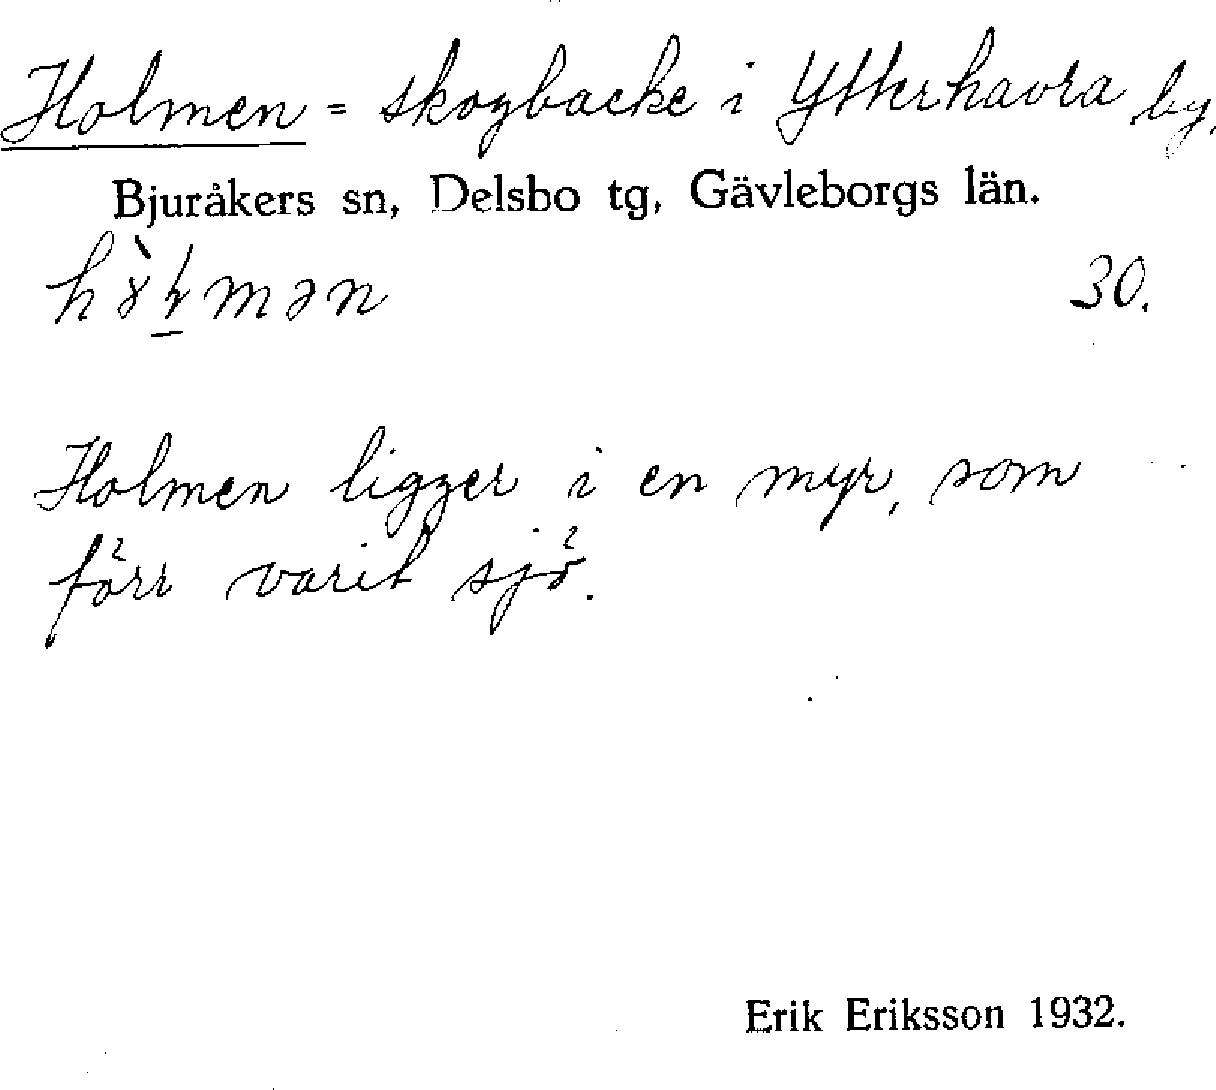 Holmen = skogbacke i Ytterhavra by.
Bjuråkers sn, Delsbo tg, Gävleborgs län.
30.
Holmen ligger i en myr, som
förr varit sjö.
Erik Eriksson 1932.